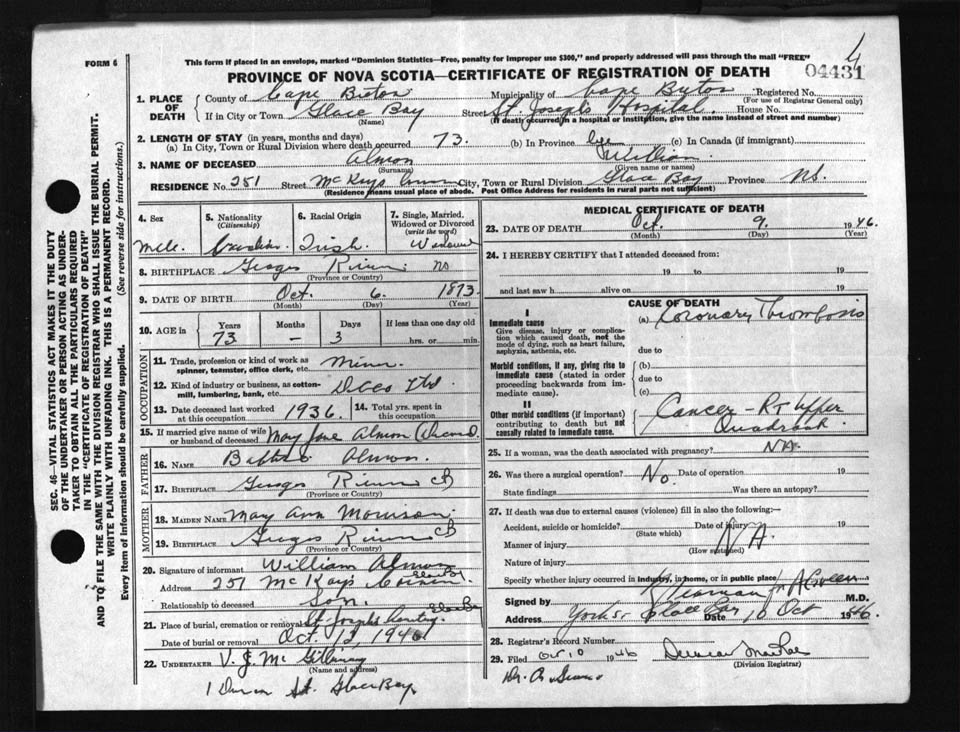 4
FORM 6
This form if placed in an envelope, marked "Dominion Statistics—Free, penalty for improper use $300," and properly addressed will pass through the mail "FREE"
PROVINCE OF NOVA SCOTIA—CERTIFICATE OF REGISTRATION OF DEATH
04431
1. PLACE OF DEATH
County of Cape Breton Municipality of Cape Breton Registered No.
(For use of Registrar General only)
If in City or Town Glace Bay Street St. Josephs Hospital. House No.
(Name) (If death occurred in a hospital or institution, give the name instead of street and number)
2. LENGTH OF STAY (in years, months and days)
(a) In City, Town or Rural Division where death occurred 73. (b) In Province (c) In Canada (if immigrant)
3. NAME OF DECEASED Almon William
(Surname) (Given name or names)
RESIDENCE No. 251 Street McKays City, Town or Rural Division Glace Bay Province NS.
(Residence means usual place of abode. Post Office Address for residents in rural parts not sufficient)
4. Sex
5. Nationality (Citizenship)
6. Racial Origin
7. Single, Married, Widowed or Divorced (write the word)
Male. Canadian. Irish. Widowed
8. BIRTHPLACE Georges River NS
(Province or Country)
9. DATE OF BIRTH Oct. 6. 1873.
(Month) (Day) (Year)
10. AGE in Years Months Days If less than one day old
73 — 3 hrs. or min.
OCCUPATION
11. Trade, profession or kind of work as spinner, teamster, office clerk, etc. Miner
12. Kind of industry or business, as cotton-mill, lumbering, bank, etc. Dosco Ltd
13. Date deceased last worked at this occupation 1936.
14. Total yrs. spent in this occupation
15. If married give name of wife or husband of deceased May Jane Almon
FATHER
16. NAME Almon.
17. BIRTHPLACE Georges River CB
(Province or Country)
MOTHER
18. MAIDEN NAME Mary Ann Morrison.
19. BIRTHPLACE Georges River CB
(Province or Country)
20. Signature of informant William Almon
Address 251 McKays Corner Glace Bay
Relationship to deceased Son.
21. Place of burial, cremation or removal St. Josephs Glace Bay
Date of burial or removal Oct. 12, 1946
22. UNDERTAKER V. J. McGillivray
(Name and address)
St. Glace Bay.
MEDICAL CERTIFICATE OF DEATH
23. DATE OF DEATH Oct. 9. 1946
(Month) (Day) (Year)
24. I HEREBY CERTIFY that I attended deceased from:
19 to 19
and last saw h alive on 19
CAUSE OF DEATH
I
Immediate cause
Give disease, injury or complication which caused death, not the mode of dying, such as heart failure, asphyxia, asthenia, etc.
(a) Coronary Thrombosis
due to
Morbid conditions, if any, giving rise to immediate cause (stated in order proceeding backwards from immediate cause).
(b)
due to
(c)
II
Other morbid conditions (if important) contributing to death but not causally related to immediate cause.
Cancer - Rt Upper
Quadrant
25. If a woman, was the death associated with pregnancy? NA.
26. Was there a surgical operation? No. Date of operation 19
State findings Was there an autopsy?
27. If death was due to external causes (violence) fill in also the following:—
Accident, suicide or homicide? Date of injury 19
(State which)
Manner of injury NA.
(How sustained)
Nature of injury
Specify whether injury occurred in industry, in home, or in public place
Signed by M.D.
Address Glace Bay Date 10 Oct 1946.
28. Registrar's Record Number
29. Filed Oct 10 1946
(Division Registrar)
SEC. 46—VITAL STATISTICS ACT MAKES IT THE DUTY
OF THE UNDERTAKER OR PERSON ACTING AS UNDER-
TAKER TO OBTAIN ALL THE PARTICULARS REQUIRED
IN THE "CERTIFICATE OF REGISTRATION OF DEATH"
AND TO FILE THE SAME WITH THE DIVISION REGISTRAR WHO SHALL ISSUE THE BURIAL PERMIT.
WRITE PLAINLY WITH UNFADING INK. THIS IS A PERMANENT RECORD.
Every item of information should be carefully supplied. (See reverse side for instructions.)